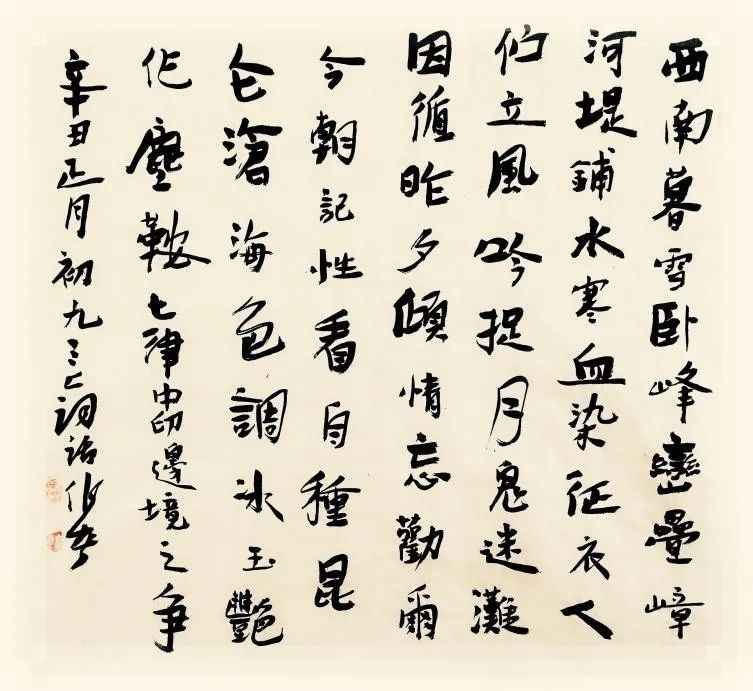 西南暮雪卧峰巒疊嶂
河堤鋪水寒血染征衣人
伫立風吟捉月鬼迷灘
因循昨夕傾情忘勸爾
今朝記性看自種昆
仑滄海色調冰玉艷
化塵鞍七律中印邊境之争
辛丑正月初九詞話